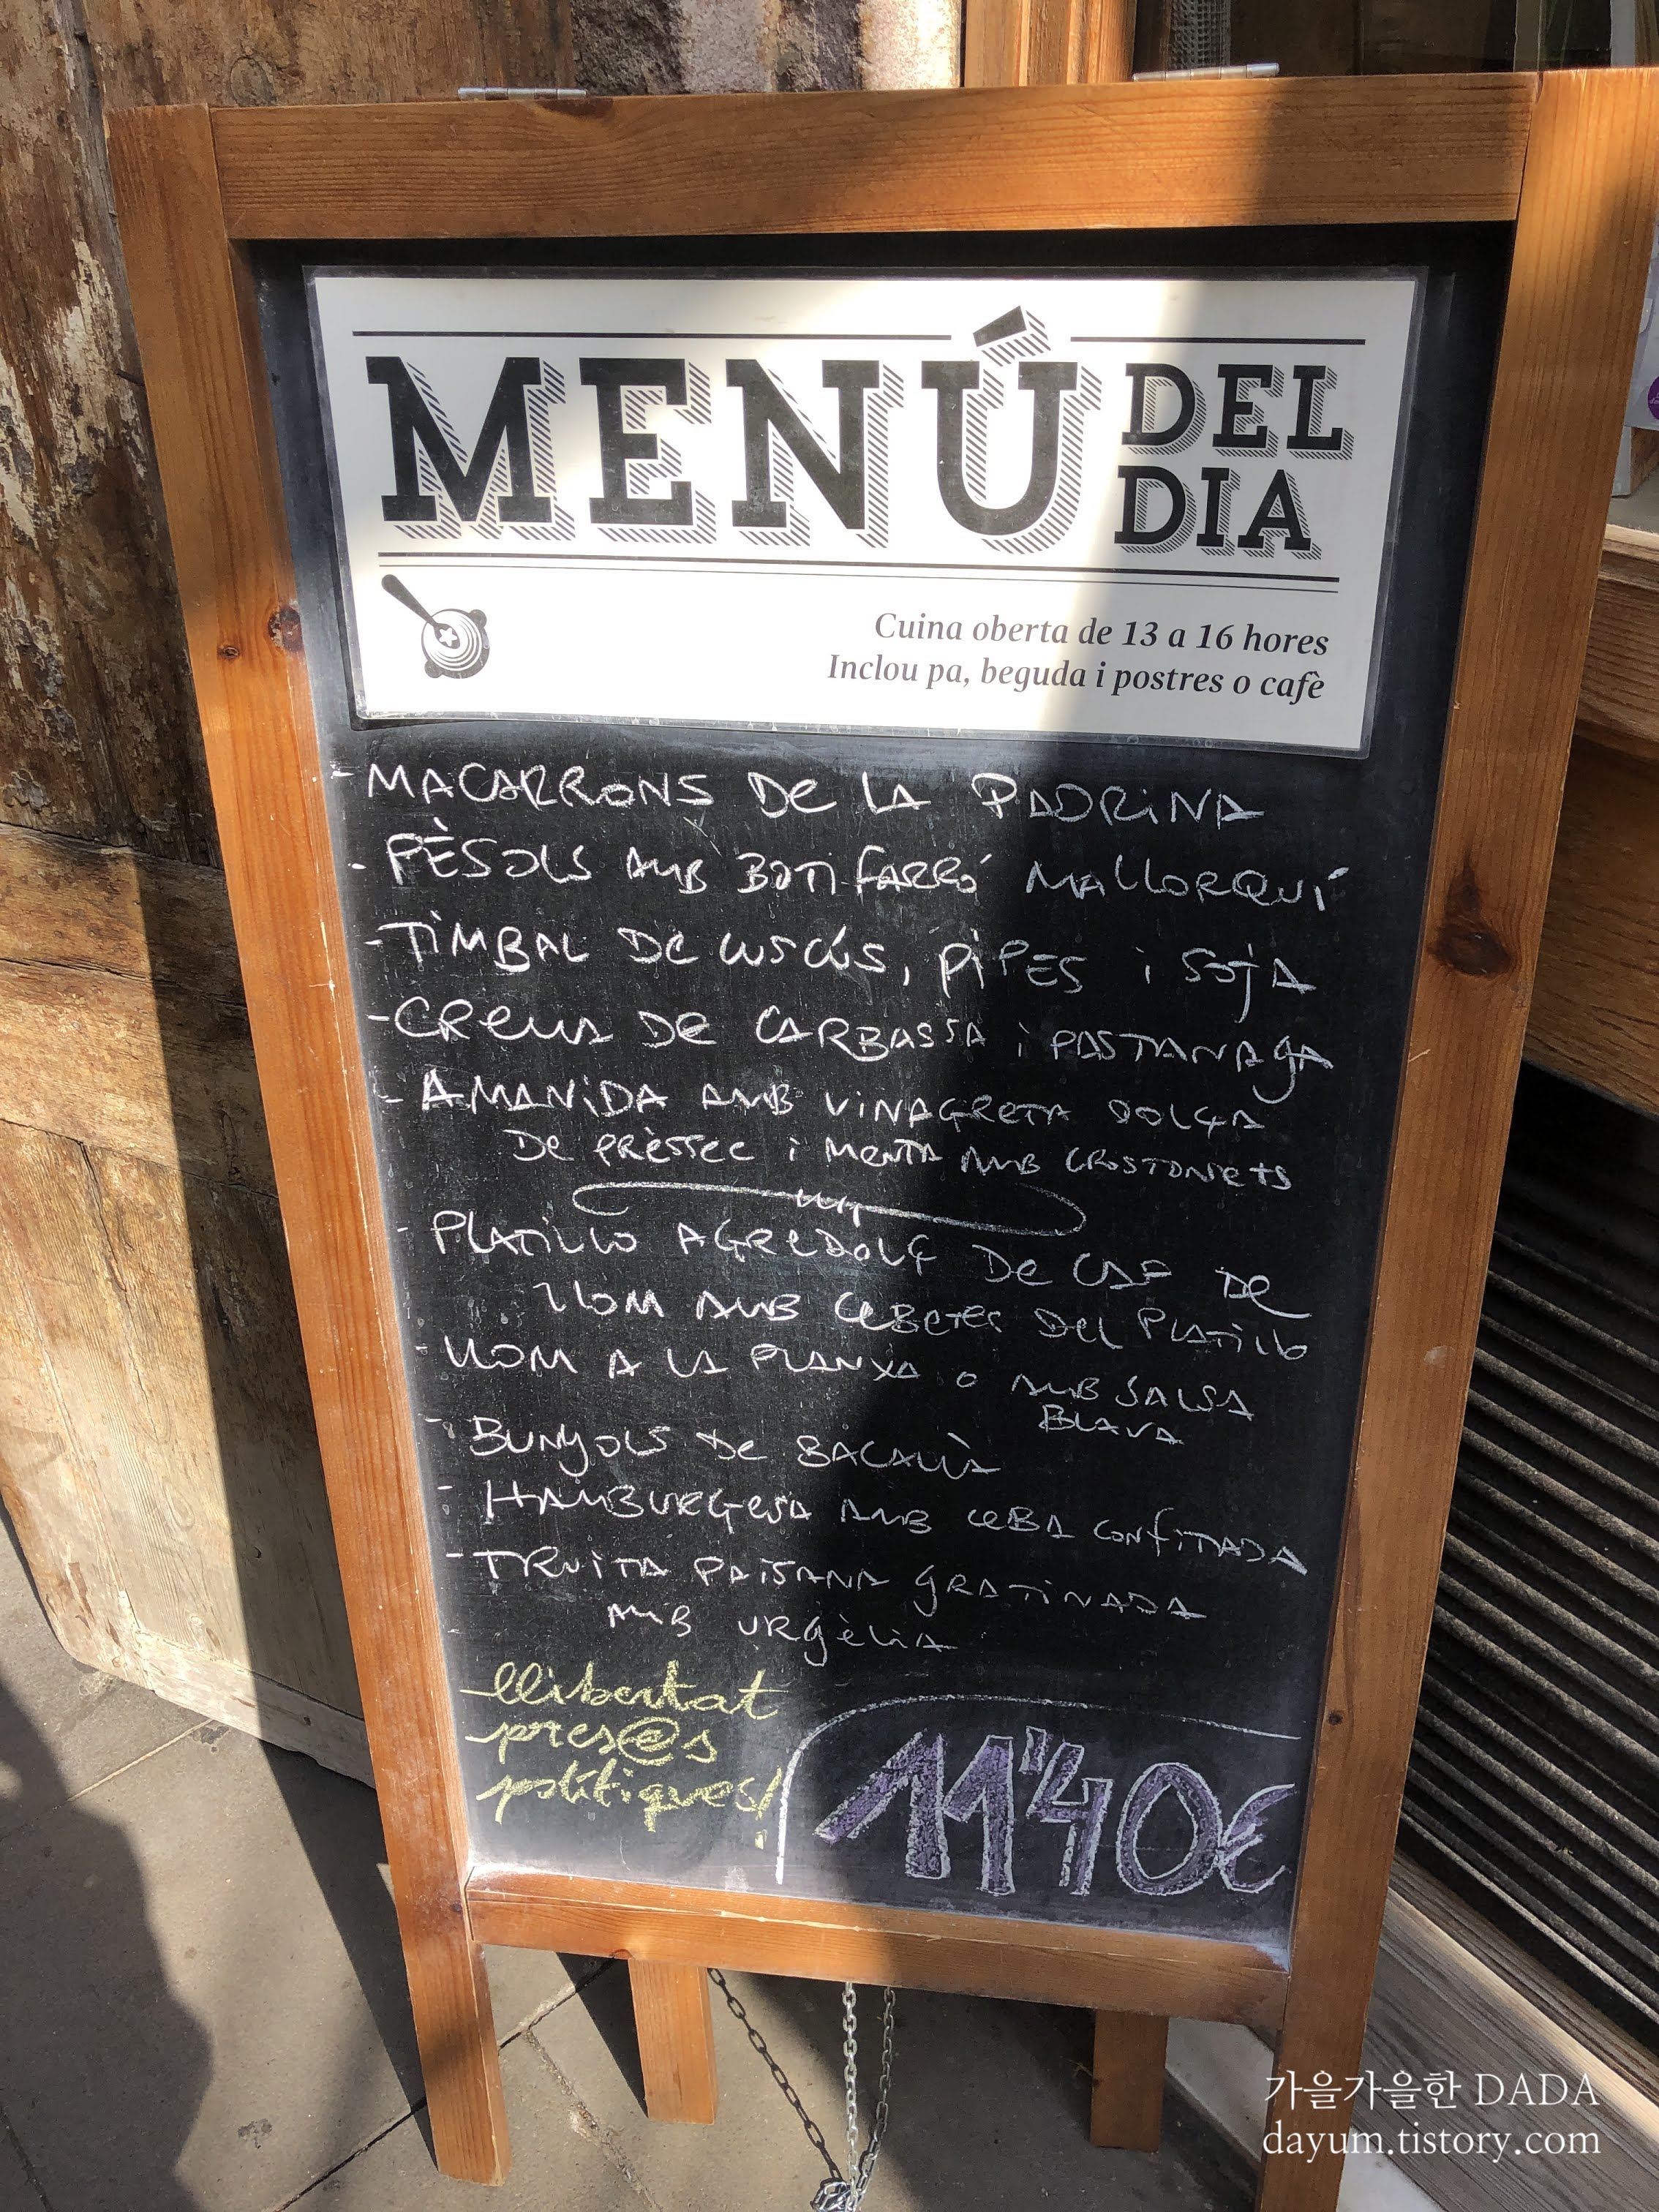 MENÚ DEL DIA
Cuina oberta de 13 a 16 hores
Inclou pa, beguda i postres o cafè
- MACARRONS DE LA PADRINA
- PÈSOLS AMB BOTIFARRÓ MALLORQUÍ
- TIMBAL DE CUSCÚS, PIPES i SOJA
- CREMA DE CARBASSA i PASTANAGA
- AMANIDA AMB VINAGRETA DOLÇA
DE PRÈSSEC i MENTA AMB CROSTONETS
- PLATILLO AGREDOLÇ DE CAP DE
LLOM AMB CEBETES DEL PLATILLO
- LLOM A LA PLANXA O AMB SALSA
BLAVA
- BUNYOLS DE BACALLÀ
- HAMBURGESA AMB CEBA CONFITADA
- TRUITA PAISANA GRATINADA
AMB URGÈLIA
llibertat
pres@s
polítiques!
11'40€
가을가을한 DADA
dayum.tistory.com